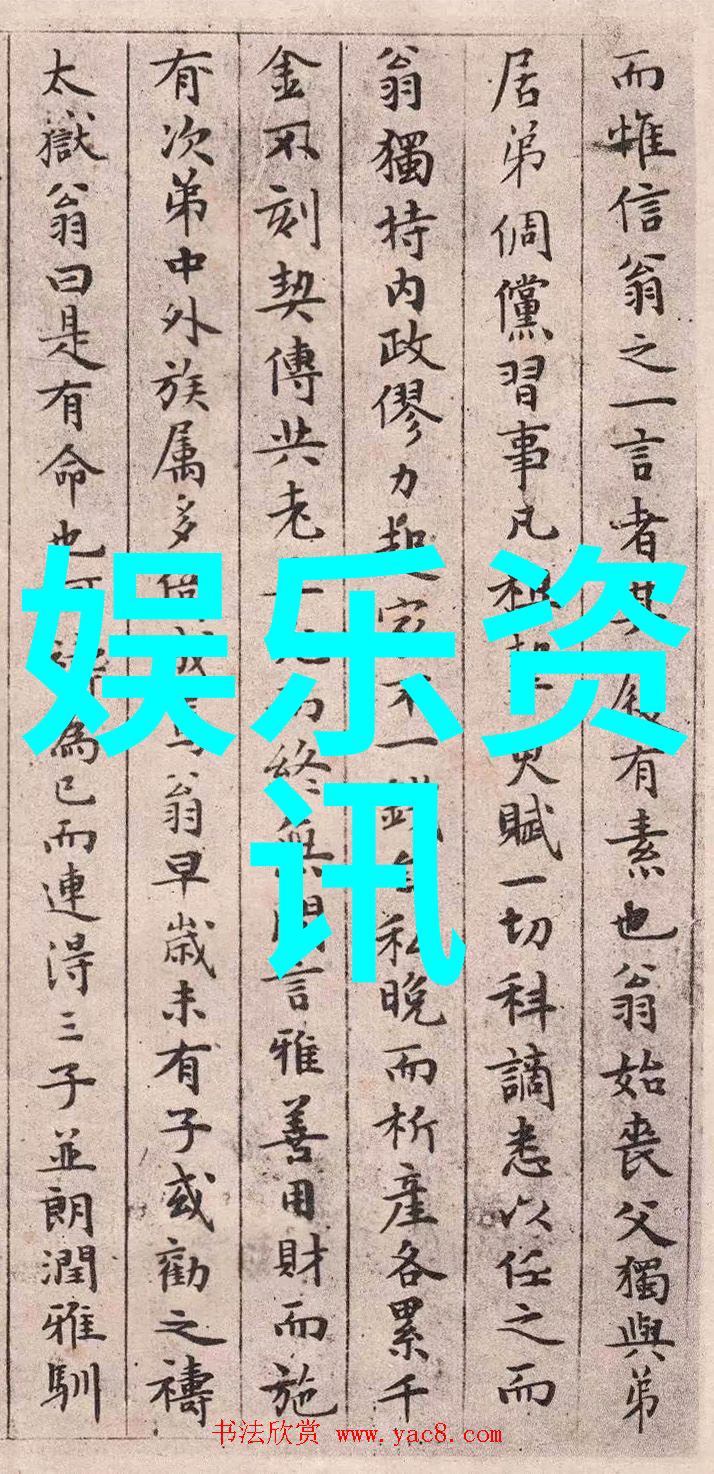 而惟信翁之一言者其叙有素也翁始丧父獨與弟
居弟倜儻習事凡租契更賦一切科謫悉以任之而
翁獨持内政僇力起家不一錢自私晚而析產各累千
金不刻契傳共老終無間言雅善用財而施
有次弟中外族属多翁早歲未有子或勸之禱
太嶽翁曰是有命也為已而連得三子並朗潤雅馴
娱乐资
讯
书法欣赏 www.yac8.com